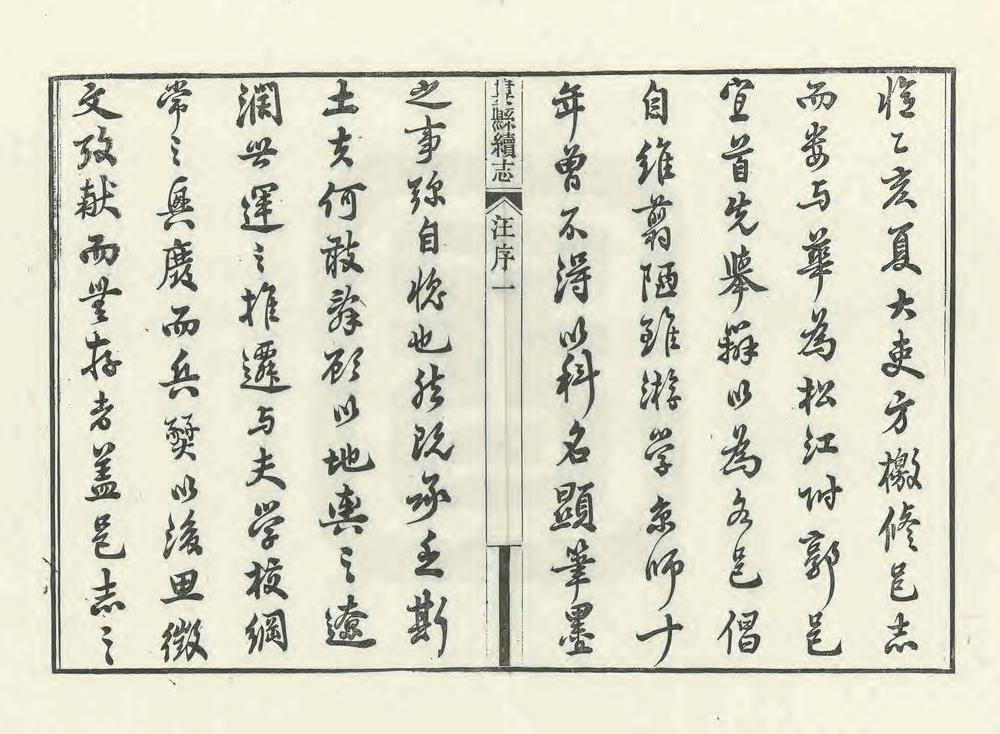 乙亥夏大吏方檄修邑志
而婁与華為松江附郭邑
宜首先舉辦以為各邑倡
自維翦陋雖游学京師十
年曾不得以科名顯筆墨
婁縣續志
汪序
一
之事弥自也然既承乏斯
土夫何敢辞顧以地輿之遼
濶世運之推遷与夫学校綱
常之興廢而兵燹以後思徵
文攷献而無存者盖邑志之